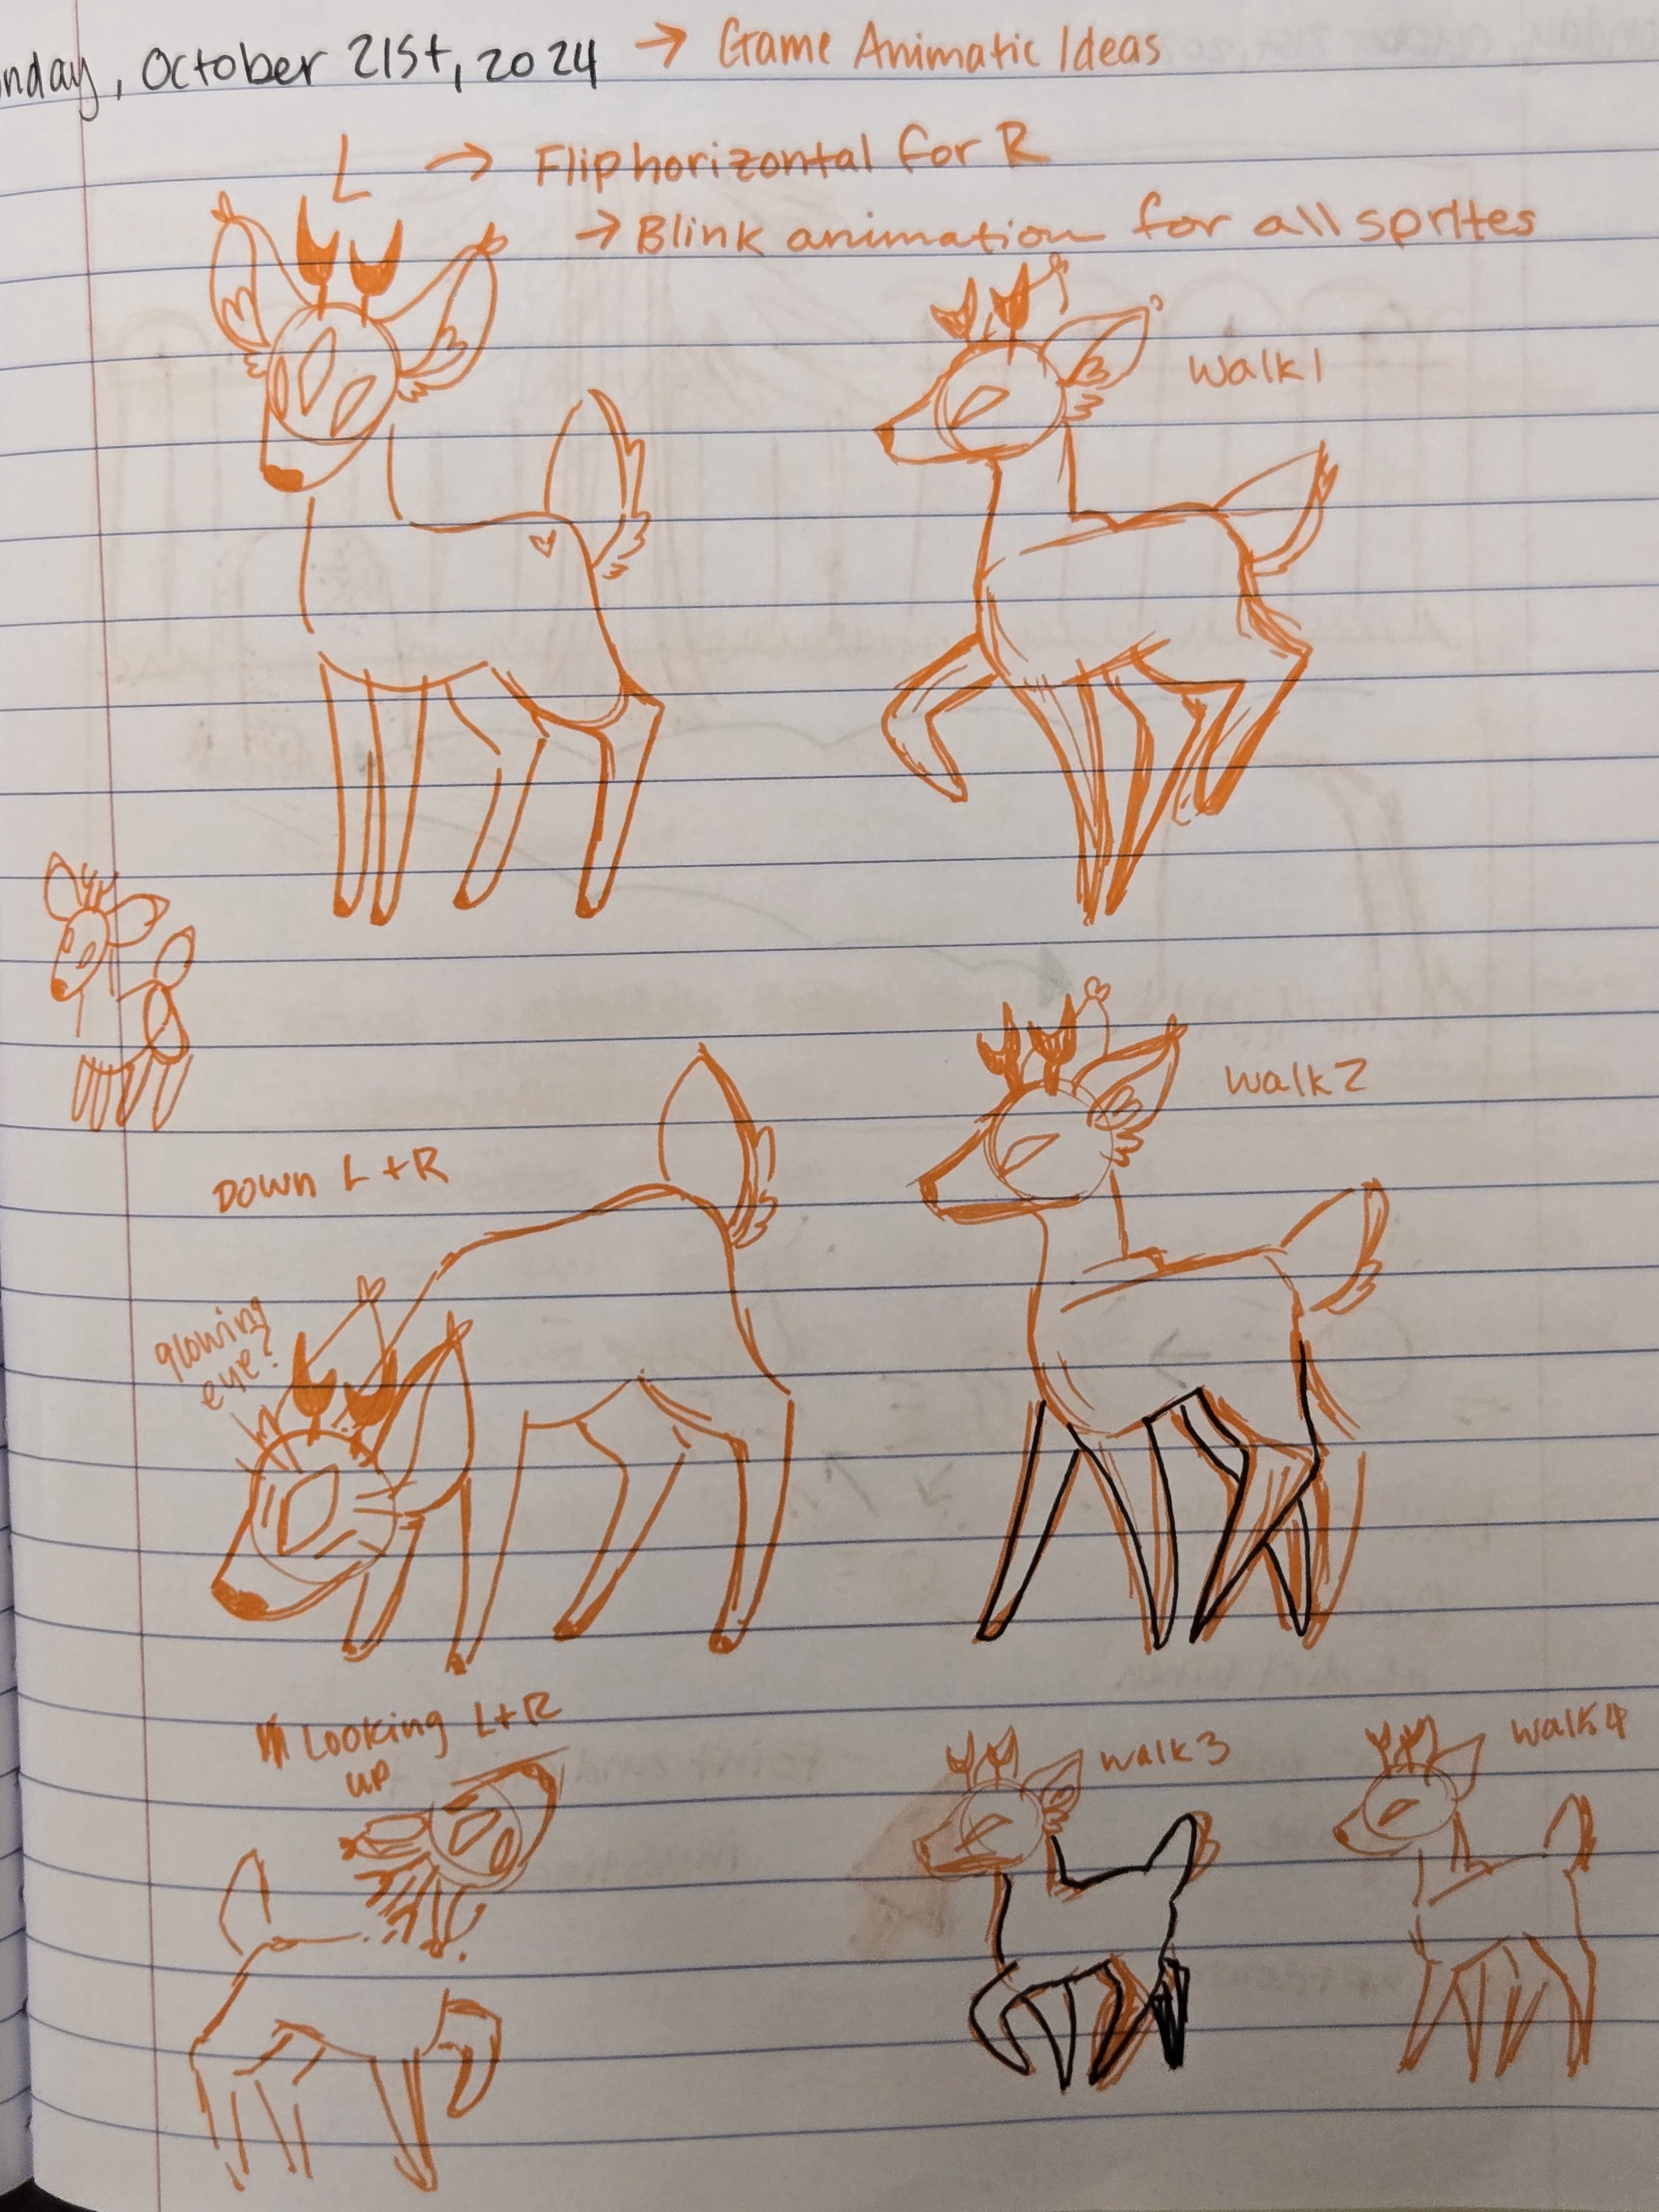 nday, October 21st, 2024 → Game Animatic Ideas
L → Flip horizontal for R
→ Blink animation for all sprites
walk1
walk2
DOWN L+R
glowing
eye?
Looking L+R
up
walk3
walk4